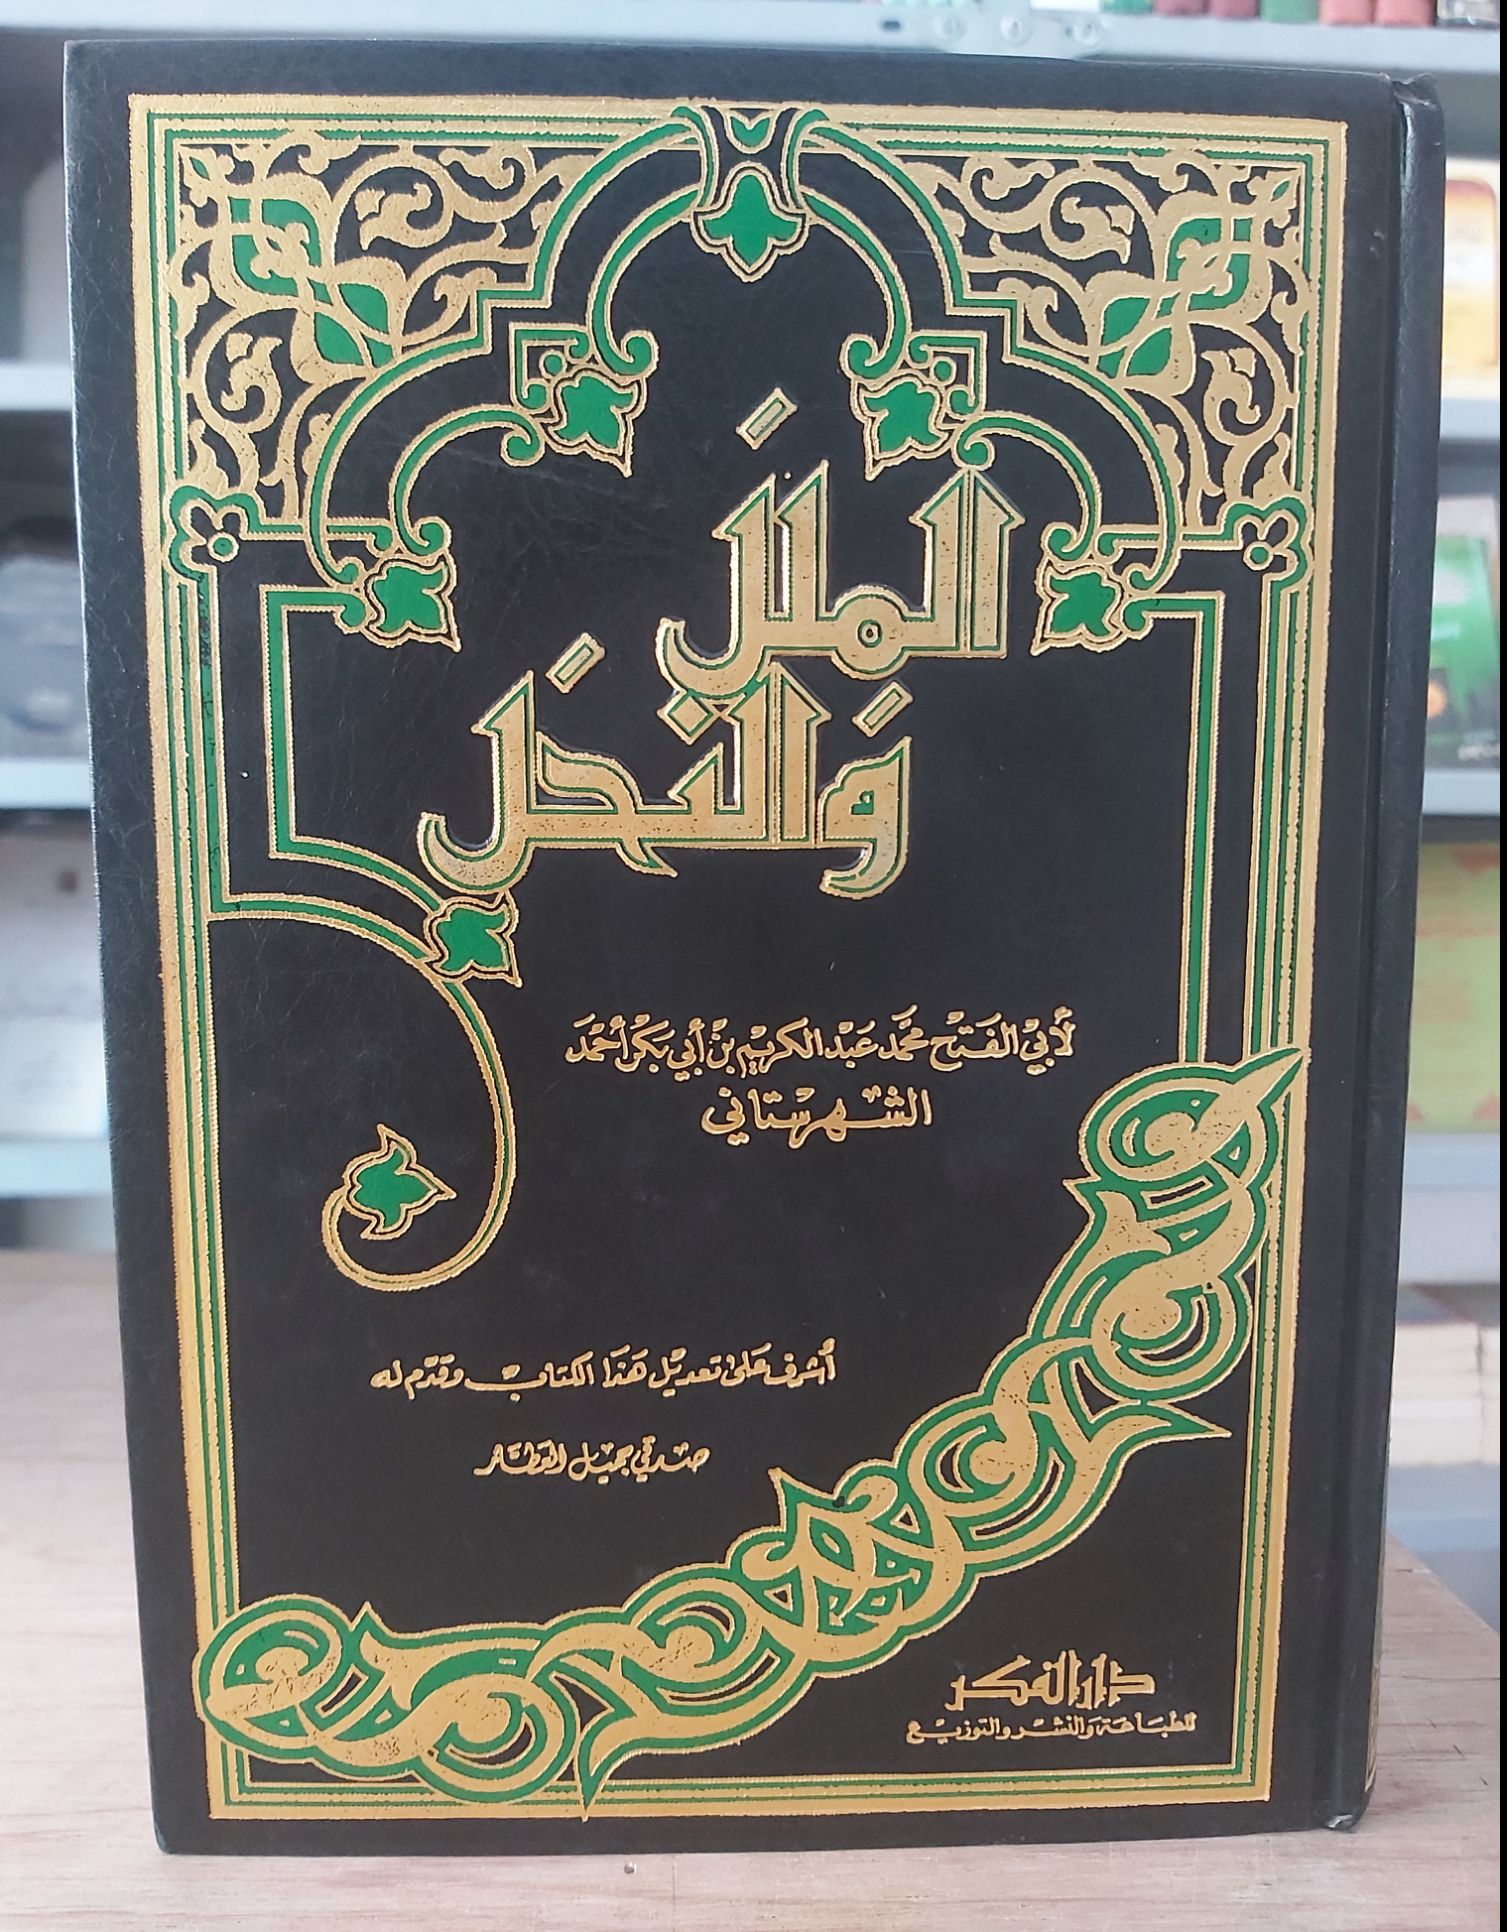 المِلَل
وَالنِّحَل
لأَبي الفَتْح محمَّد عَبْد الكريم بنْ أبي بَكْر أحْمَد
الشهرستاني
أشرف عَلى تعديل هَذَا الكتاب وقدّم له
صدقي جميل العَطّار
دار الفكر
للطبَاعَة وَالنشر والتوزيع